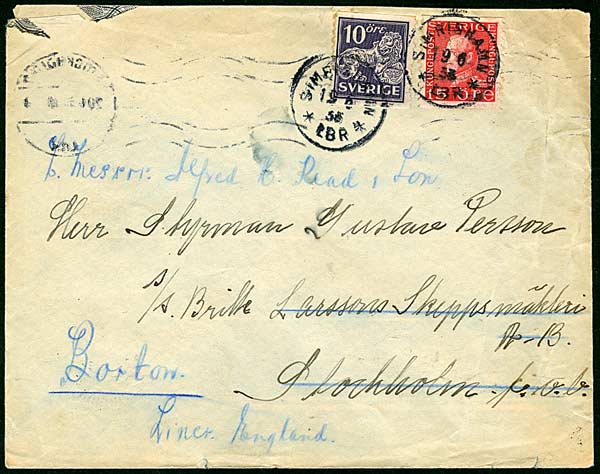 10 ÖRE
SVERIGE
SVERIGE
KUNGEPOST
15 ÖRE
SIMRISHAMN
19 6
36
* LBR *
SIMRISHAMN
19 6
36
* LBR *
c. Messrs. Alfred E. Read & Son
Herr Styrman Gustav Person
s/s. Britte Larssons Skeppsmäkleri
A-B.
Boston. Stockholm f.v.b.
Lincs. England.